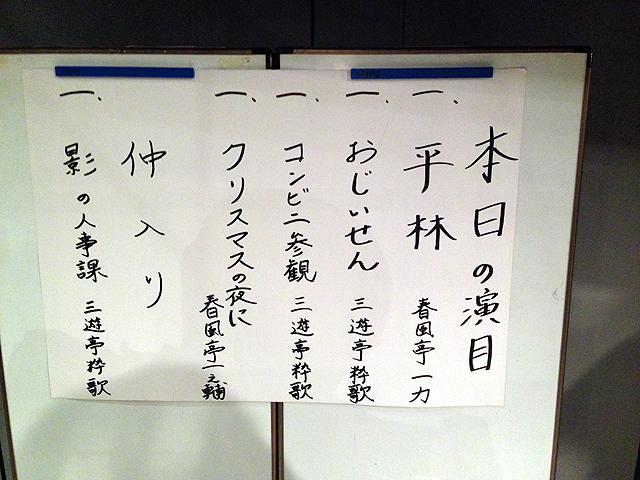 本日の演目
一、平林 春風亭一力
一、おじいせん 三遊亭粋歌
一、コンビニ参観 三遊亭粋歌
一、クリスマスの夜に 春風亭一之輔
仲入り
一、影の人事課 三遊亭粋歌